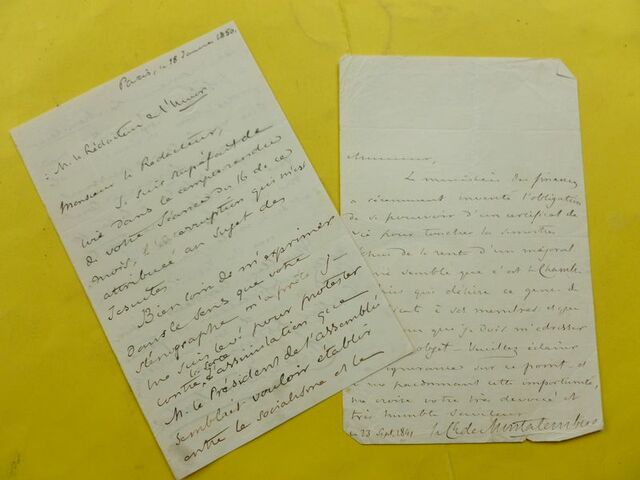 Paris, le 18 Janvier 1850.
M. le Rédacteur de l'Union
Monsieur le Rédacteur,
Je suis stupéfait de
lire dans le compte rendu
de votre séance du 16 de ce
mois, l'interruption qui m'est
attribuée au sujet des
Jesuites.
Bien loin de m'exprimer
dans le sens que votre
sténographe m'a prêté, je
me suis levé pour protester
contre l'assimilation que
M. le Président de l'assemblée
semblait vouloir établir
entre le socialisme et les
Monsieur,
Le ministère des finances
a récemment inventé l'obligation
de se pourvoir d'un certificat de
vie pour toucher le
de la rente d'un majorat
semble que c'est la Chambre
qui délivre ce genre de
à ses membres et que
que je dois m'adresser
objet. Veuillez éclairer
ignorance sur ce point et
me pardonnant cette importunité,
me croire votre très dévoué et
très humble serviteur
23 Sept. 1841 le Cte de Montalembert